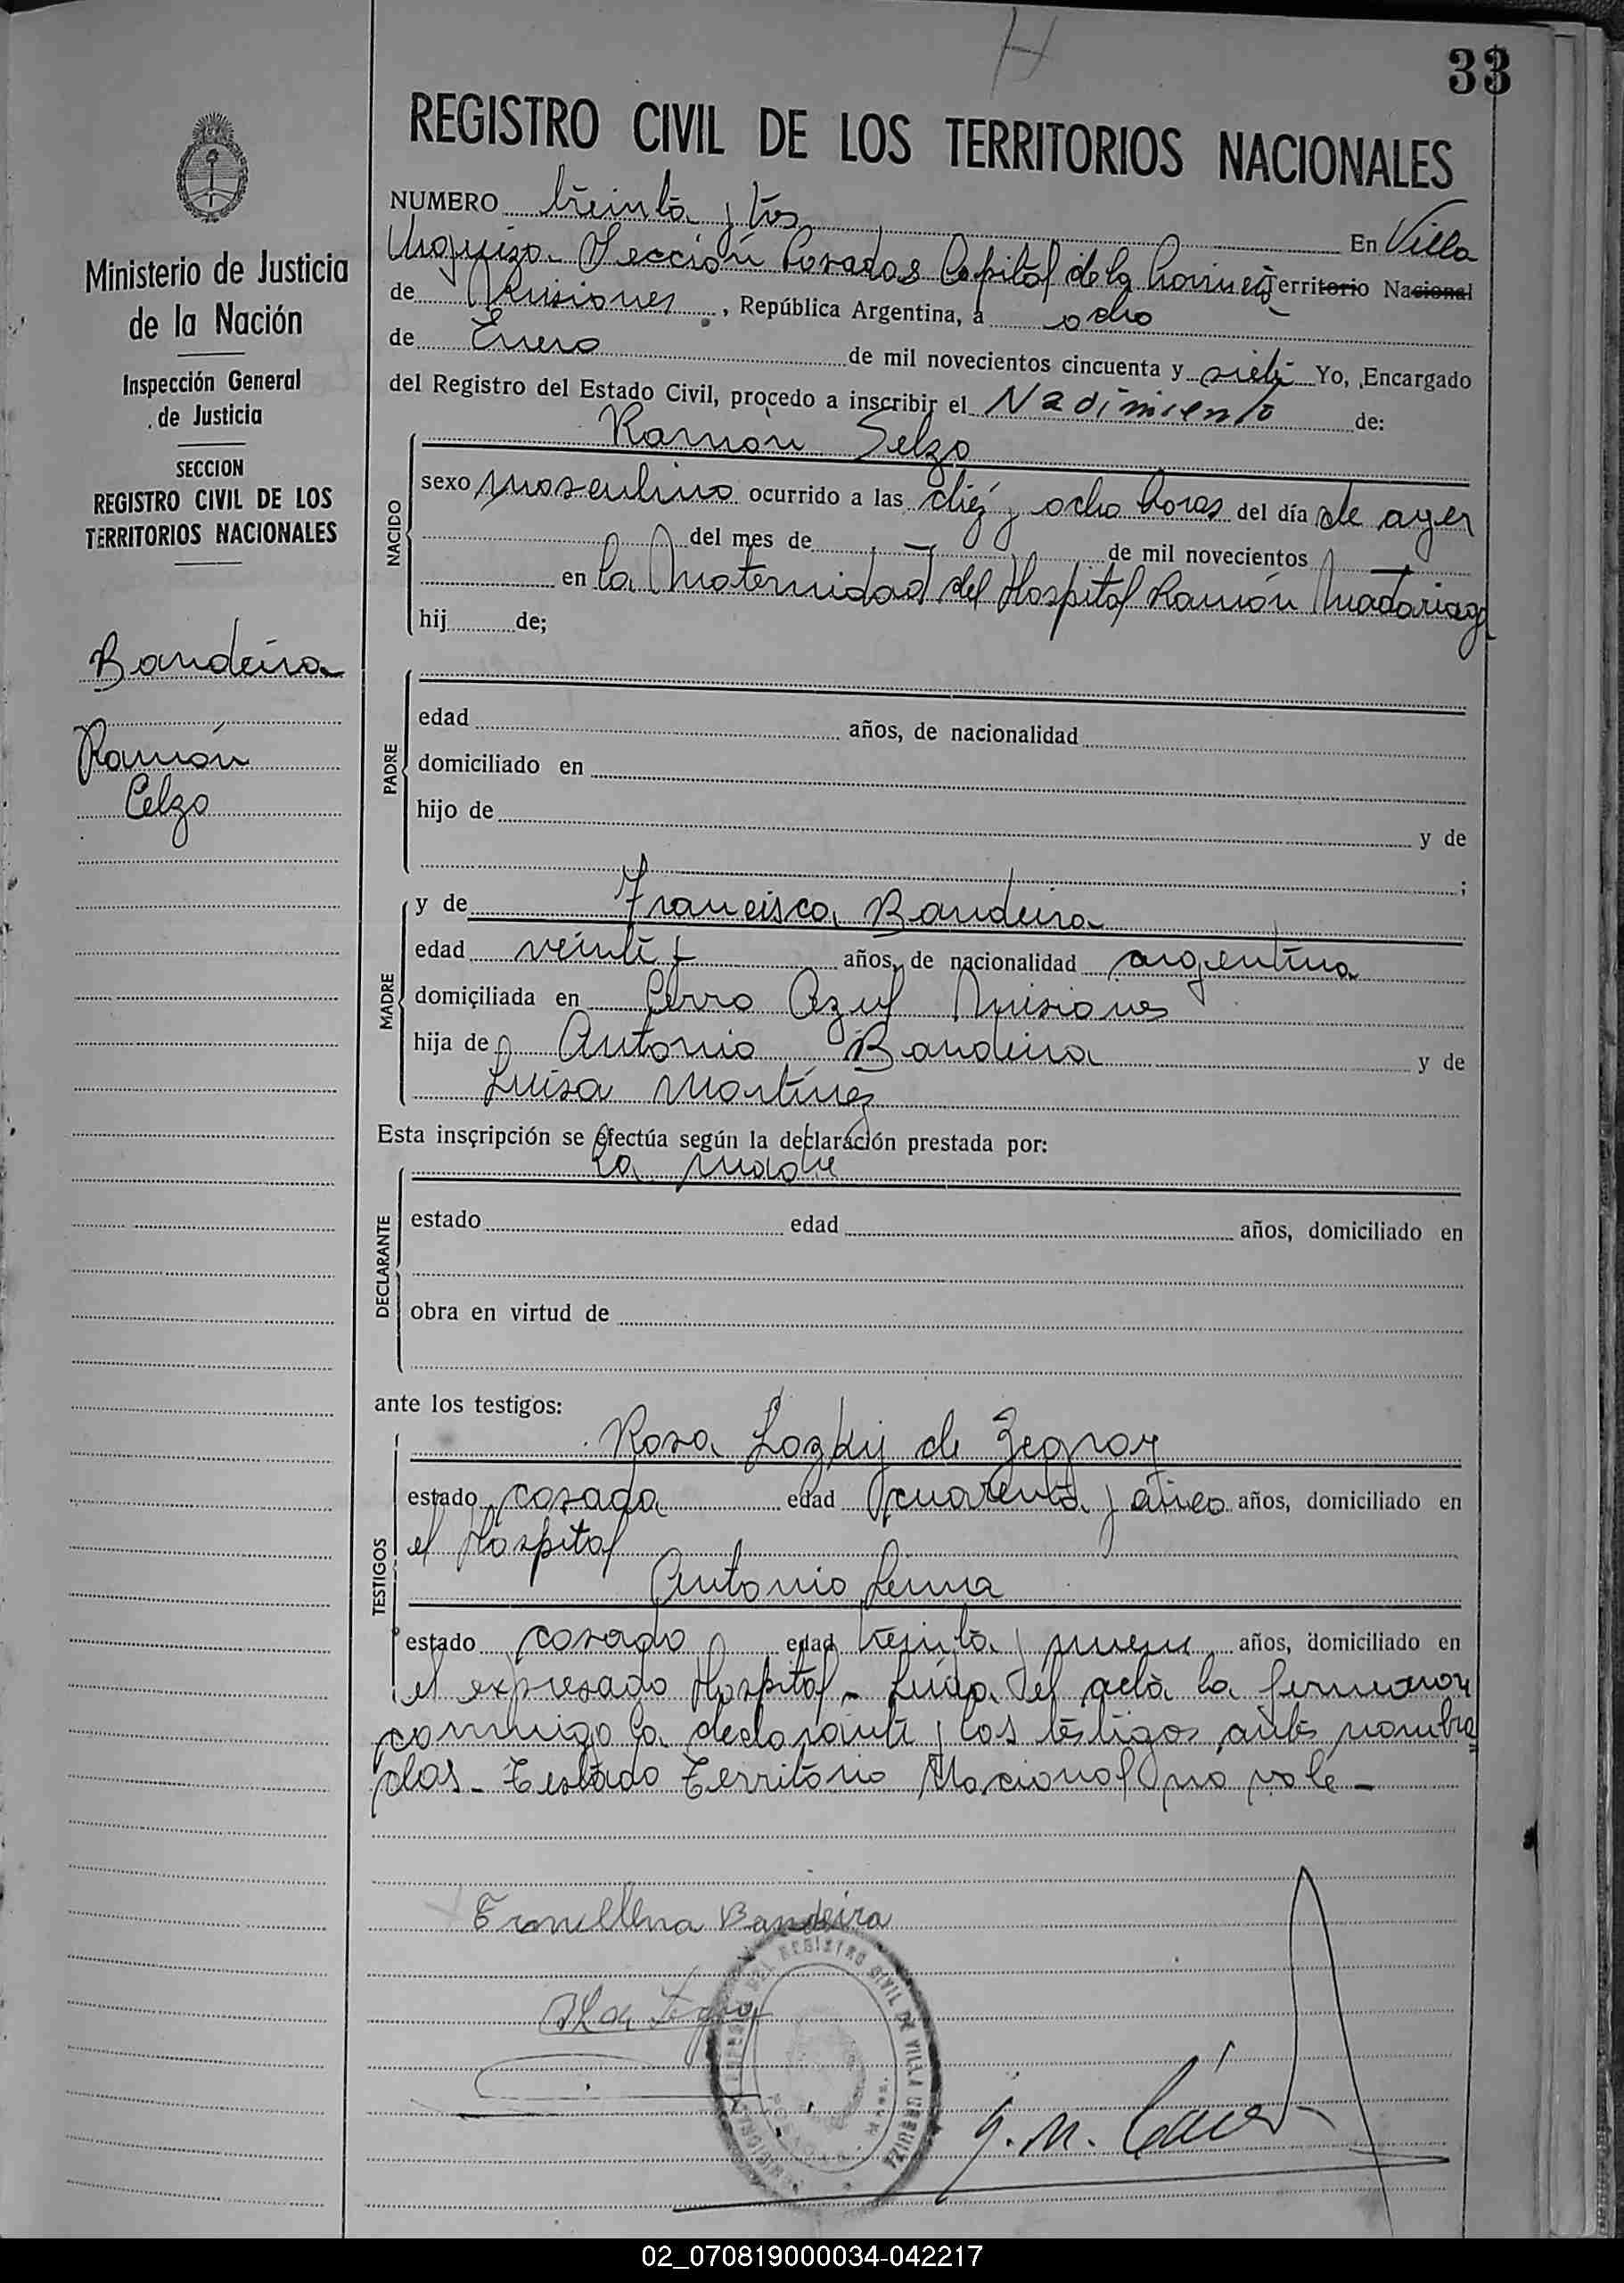 H
33
REGISTRO CIVIL DE LOS TERRITORIOS NACIONALES
Ministerio de Justicia
de la Nación
Inspección General
de Justicia
SECCION
REGISTRO CIVIL DE LOS
TERRITORIOS NACIONALES
Bandeira
Ramón
Celzo
NUMERO treinta y tres En Villa
Urquiza - Sección Posadas Capital de la Provincia Territorio Nacional
de Misiones, República Argentina, a ocho
de Enero de mil novecientos cincuenta y siete Yo, Encargado
del Registro del Estado Civil, procedo a inscribir el Nacimiento de:
NACIDO
Ramón Selzo
sexo masculino ocurrido a las diez y ocho horas del día de ayer
del mes de — de mil novecientos —
en la Maternidad del Hospital Ramón Madariaga
hij de;
PADRE
edad años, de nacionalidad
domiciliado en
hijo de y de
;
MADRE
y de Francisca Bandeira
edad veinte años, de nacionalidad argentina
domiciliada en Cerro Azul Misiones
hija de Antonio Bandeira y de
Luisa Martínez
Esta inscripción se efectúa según la declaración prestada por:
DECLARANTE
la madre
estado edad años, domiciliado en
obra en virtud de
ante los testigos:
TESTIGOS
Rosa Lozkij de Zegray
estado casada edad cuarenta y cinco años, domiciliado en
el Hospital
Antonio Lema
estado casado edad treinta y nueve años, domiciliado en
el expresado Hospital - Leída el acta la firmaron
conmigo la declarante y los testigos antes nombra=
dos - Testado Territorio Nacional no vale -
Bandeira
REGISTRO CIVIL DE VILLA URQUIZA
POSADAS
02_070819000034-042217